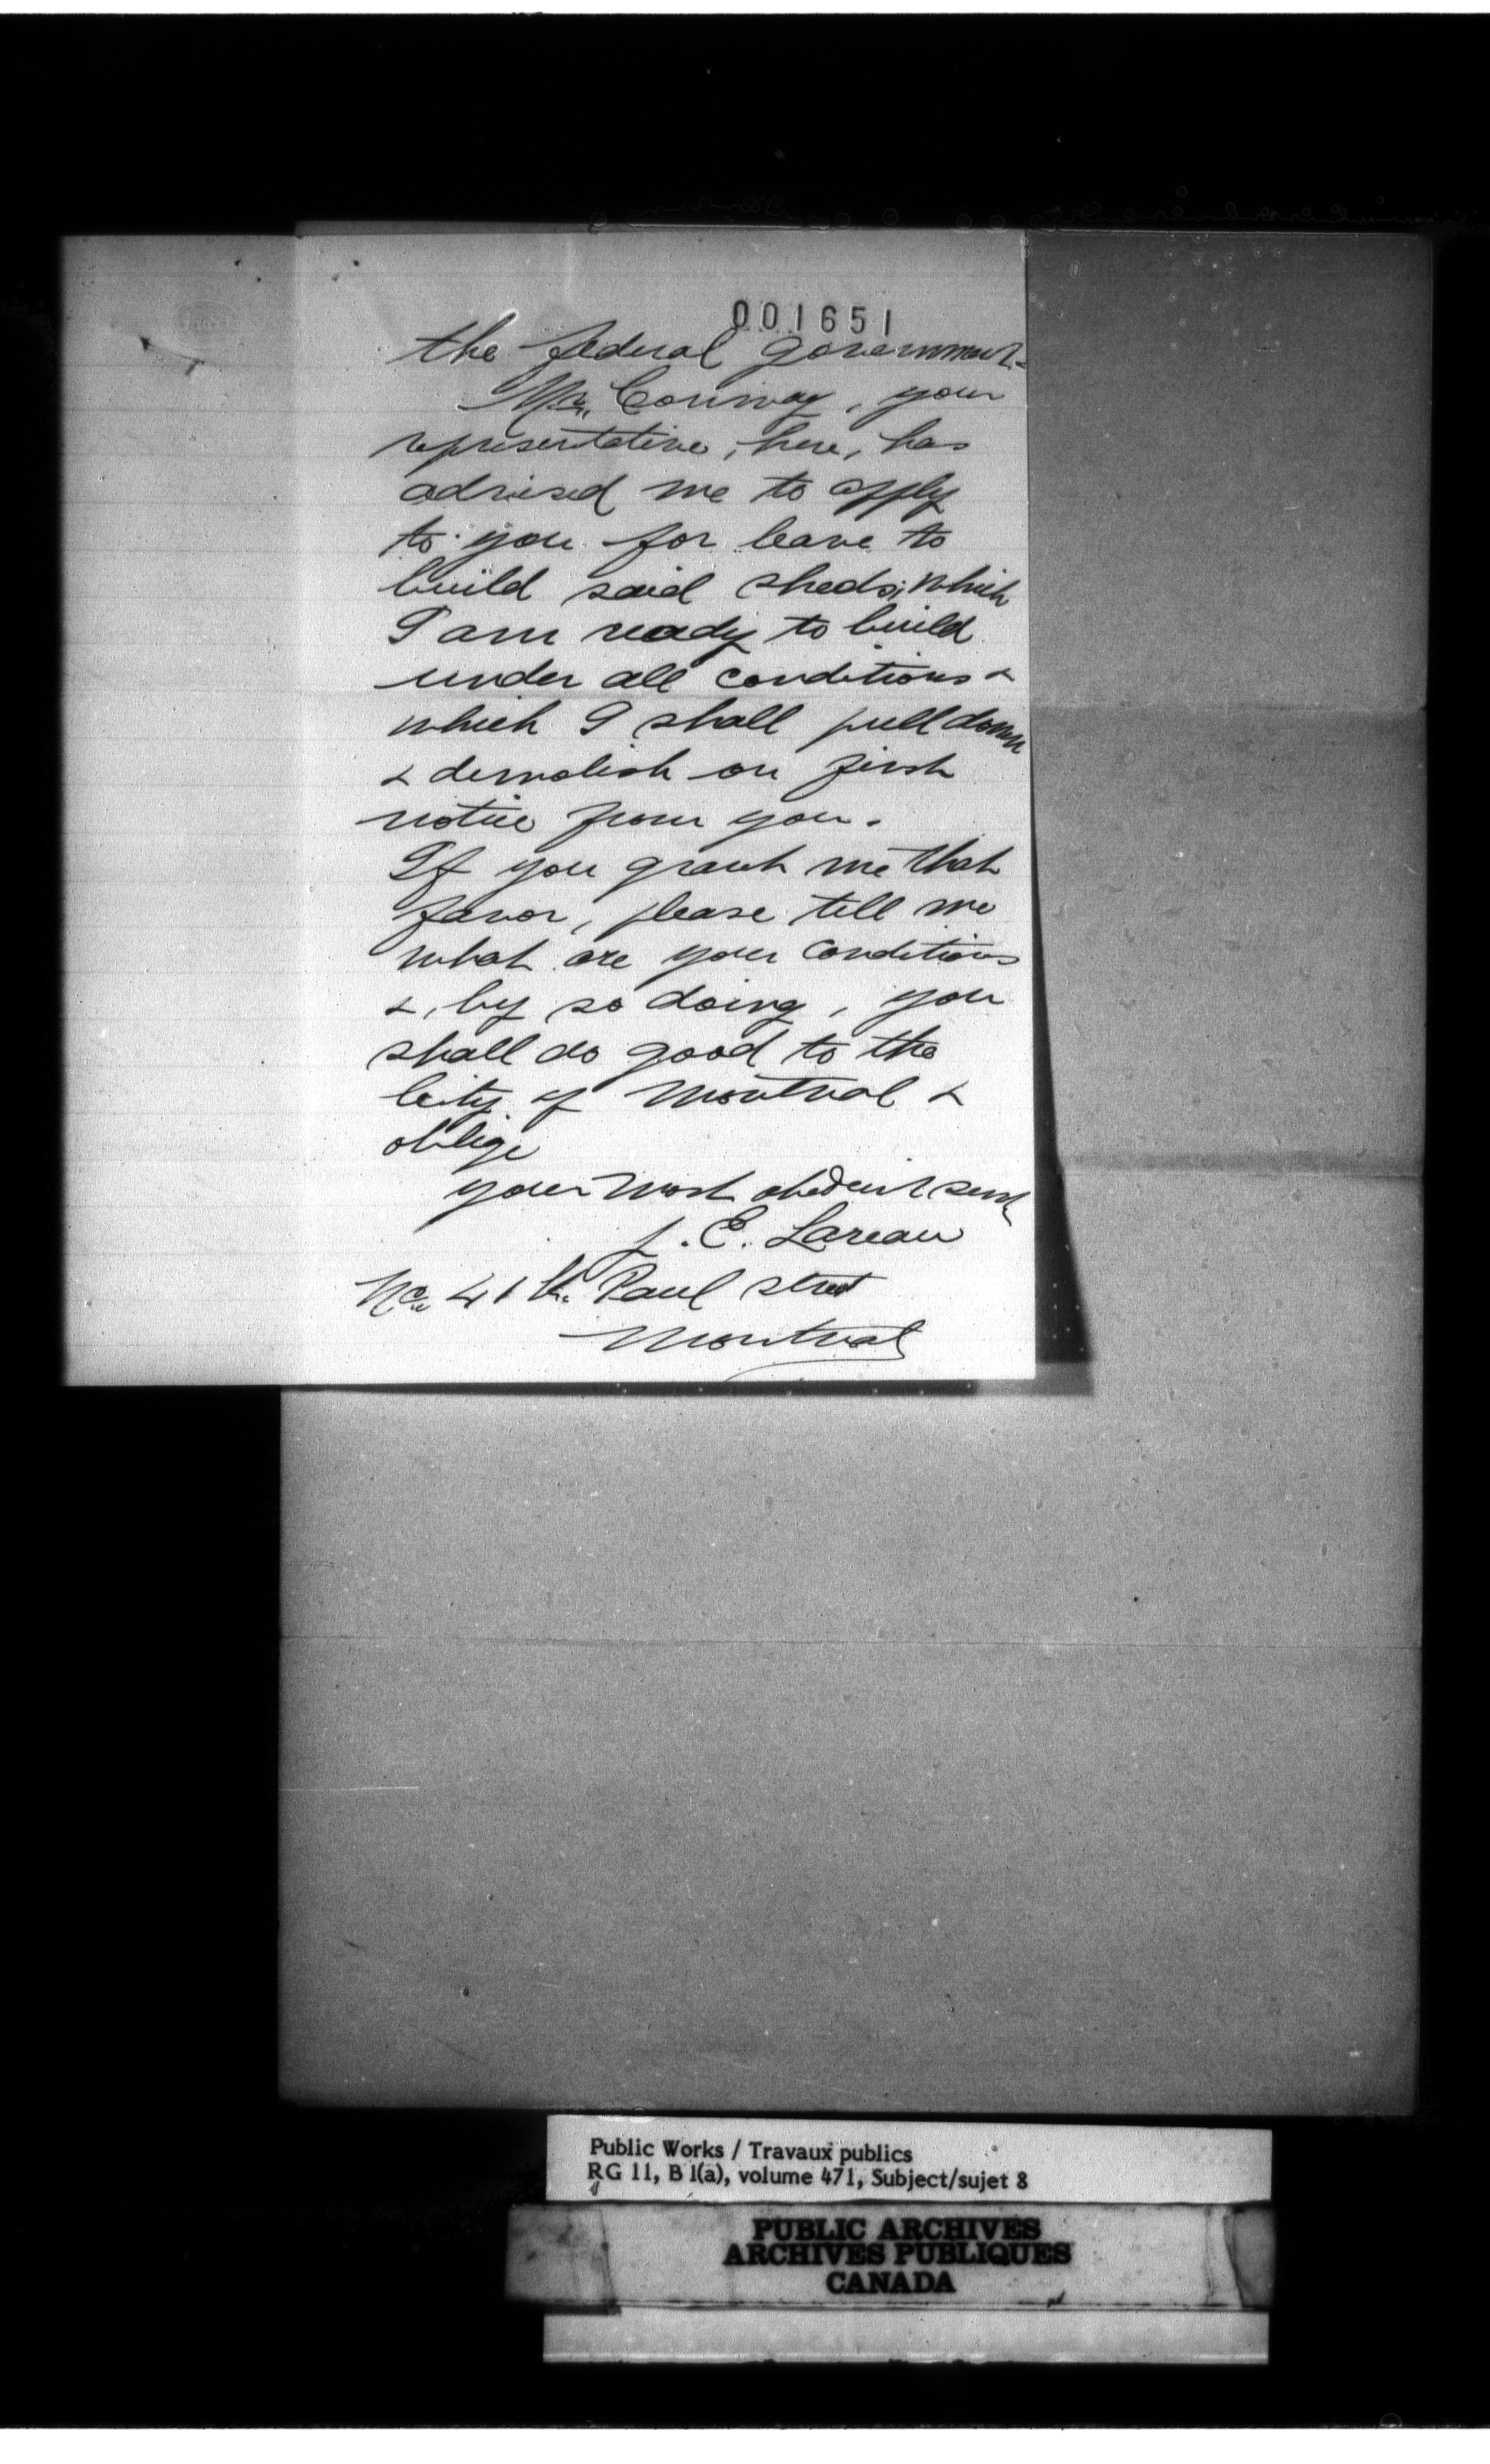 001651
the federal government.
Mr. Conway, your
representative, here, has
advised me to apply
to you for leave to
build said sheds; which
I am ready to build
under all conditions &
which I shall pull down
& demolish on first
notice from you.
If you grant me that
favor, please tell me
what are your conditions
&, by so doing, you
shall do good to the
City of Montreal &
oblige
your most obedient servt
J. E. Lareau
No. 41 St. Paul street
Montreal
Public Works / Travaux publics
RG 11, B 1(a), volume 471, Subject/sujet 8
PUBLIC ARCHIVES
ARCHIVES PUBLIQUES
CANADA